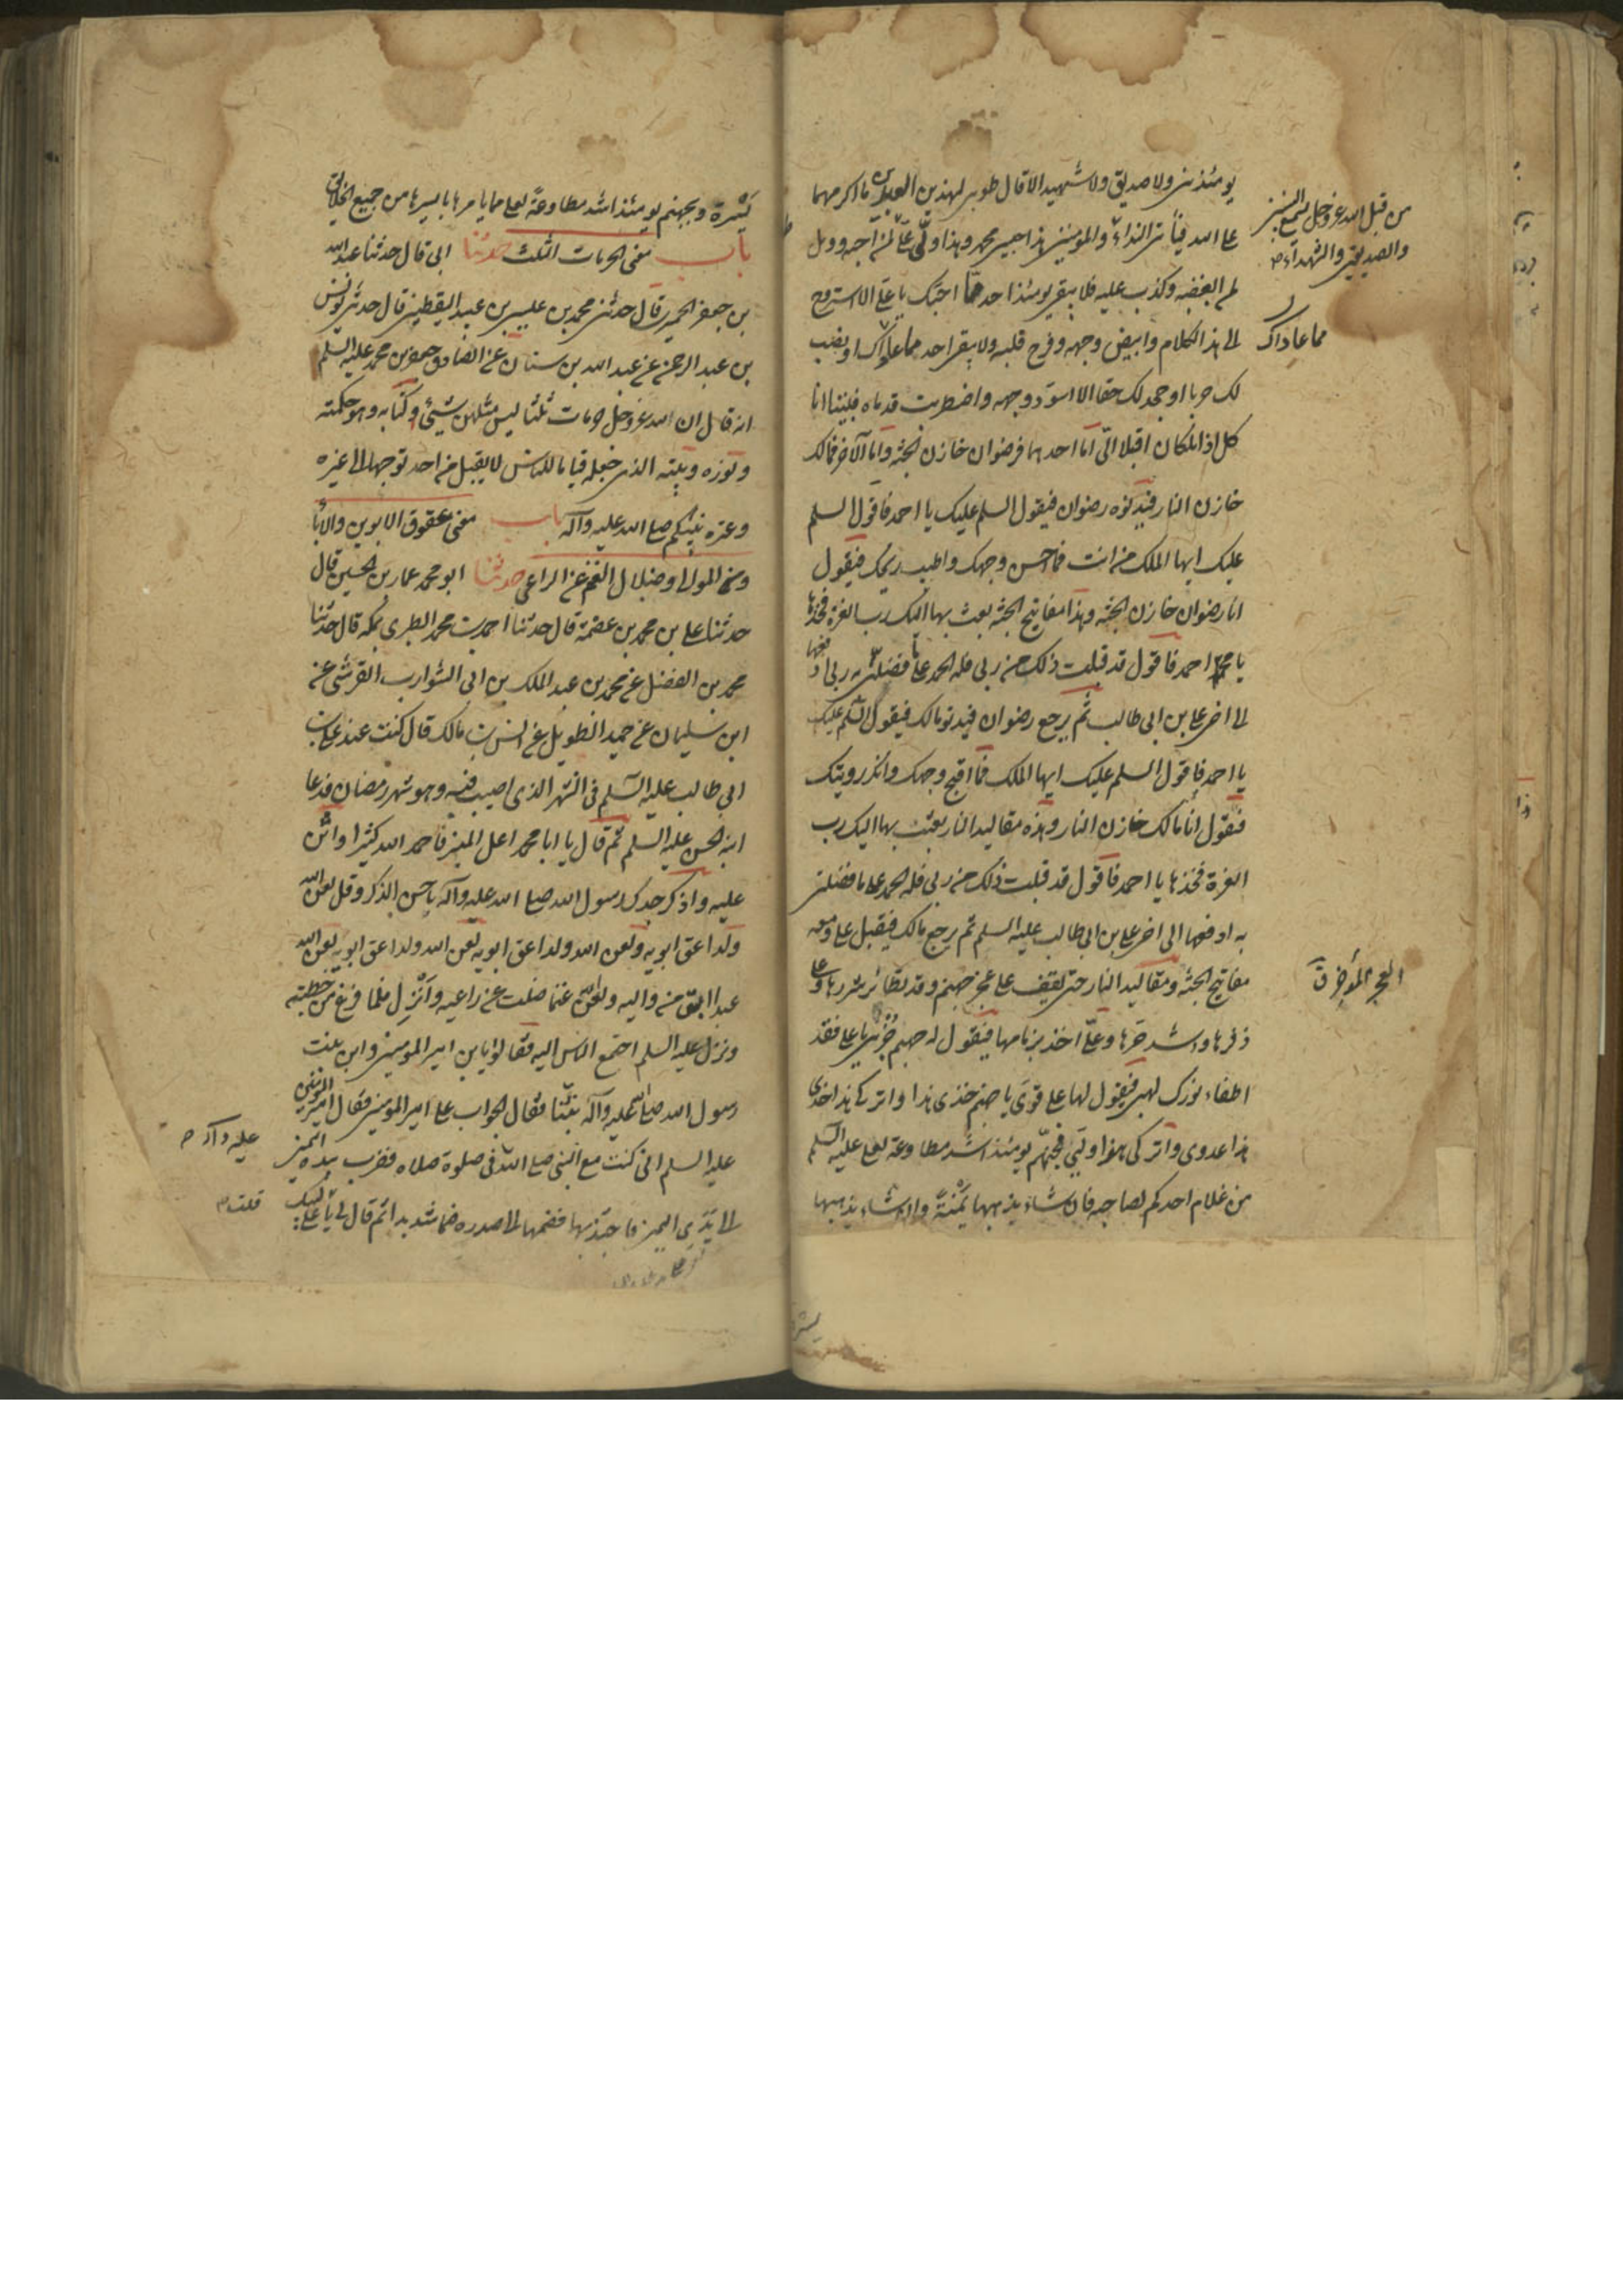 يومئذ نبى ولا صديق ولا شهيد الا قال طوبى لهذين العبدين ما اكرمهما
على الله فيأتى النداء والمؤمنين هذا حبيبى محمد وهذا وليى على طوبى لمن احبه وويل
لمن ابغضه وكذب عليه فلا يبقى يومئذ احد ممن احبك يا على الا استروح
الى هذا الكلام وابيض وجهه وفرح قلبه ولا يبقى احد مما عاداك او نصب
لك حربا او جحد لك حقا الا اسود وجهه واضطربت قدماه فبينا انا
كذلك اذا ملكان اقبلا الىّ اما احدهما فرضوان خازن الجنة واما الآخر فمالك
خازن النار فيدنوه رضوان فيقول السلم عليك يا احمد فاقول السلم
عليك ايها الملك من انت فما احسن وجهك واطيب ريحك فيقول
انا رضوان خازن الجنة وهذا مفاتيح الجنة بعث بها اليك رب العزة فخذها
يا احمد فاقول قد قبلت ذلك من ربى فله الحمد على ما فضلنى به ربى ادفعها
الى اخى على بن ابى طالب ثم يرجع رضوان فيدنو مالك فيقول السلم عليك
يا احمد فاقول السلم عليك ايها الملك فما اقبح وجهك وانكر رويتك
فيقول انا مالك خازن النار وهذه مقاليد النار بعث بها اليك رب
العزة فخذها يا احمد فاقول قد قبلت ذلك من ربى فله الحمد على ما فضلنى
به ادفعها الى اخى على بن ابى طالب عليه السلم ثم يرجع مالك فيقبل على ومعه
مفاتيح الجنة ومقاليد النار حتى يقف على عجز جهنم وقد تطائر شررها وعلا
زفرها واشتد حرها وعلىّ اخذ بزمامها فيقول له جهنم جزنى يا على فقد
اطفاء نورك لهبى فيقول لها على قرى يا جهنم خذى هذا واتركى هذا خذى
هذا عدوى واتركى هذا وليى فجهنم يومئذ اشد مطاوعة لعلى عليه السلم
من غلام احدكم لصاحبه فان شاء يذهبها يمنة وان شاء يذهبها
من قبل الله عز وجل يسمع النبيين
والصديقين والشهداء
مما عاداك
العجز المؤخر ق
يسرة ولجهنم يومئذ اشد مطاوعة لعلى مما يامرها يا ميرها من جميع الخلايق
باب معنى الحرمات الثلث حدثنا ابى قال حدثنا عبد الله
بن جعفر الحميرى قال حدثنى محمد بن عيسى بن عبيد اليقطينى قال حدثنى يونس
بن عبد الرحمن عن عبد الله بن سنان عن الصادق جعفر بن محمد عليه السلم
انه قال ان لله عز وجل حرمات ثلثا ليس مثلهن شئ كتابه وهو حكمته
ونوره وبيته الذى جعله قياما للناس لا يقبل من احد توجها الى غيره
وعترة نبيكم صلى الله عليه وآله باب معنى عقوق الابوين والاباق
من المولى وضلال الغنم عن الراعى حدثنا ابو محمد عمار بن الحسين قال
حدثنا على بن محمد بن عصمة قال حدثنا احمد بن محمد الطبرى بمكة قال حدثنا
محمد بن الفضل عن محمد بن عبد الملك بن ابى الشوارب القرشى عن
ابن سليمان عن حميد الطويل عن انس بن مالك قال كنت عند على بن
ابى طالب عليه السلم فى الشهر الذى اصيب فيه وهو شهر رمضان فدعا
ابنه الحسن عليه السلم ثم قال يا ابا محمد اعل المنبر فاحمد الله كثيرا واثن
عليه واذكر جدك رسول الله صلى الله عليه وآله باحسن الذكر وقل لعن الله
ولدا عق ابويه ولعن الله ولدا عق ابويه لعن الله ولدا عق ابويه لعن الله
عبدا ابق من مواليه ولعن الله غنما ضلت عن راعيه وانزل فلما فرغ من خطبته
ونزل عليه السلم اجتمع الناس اليه فقالوا يا بن امير المؤمنين وابن بنت
رسول الله صلى الله عليه وآله نبئنا فقال الجواب على امير المؤمنين فقال امير المؤمنين
عليه السلم انى كنت مع النبى صلى الله فى صلوة صلاه فضرب بيده اليمنى
الى يدى اليمنى فاجتذبها فضمها الى صدره ضما شديدا ثم قال لى يا على لبيك
عليه وآله
قلت